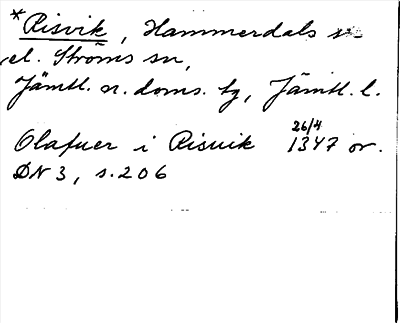 *Risvik, Hammerdals sn
el. Ströms sn,
Jämtl. n. doms. tg, Jämtl. l.
Olafuer i Risuik 26/4 1347 or.
DN 3, s. 206